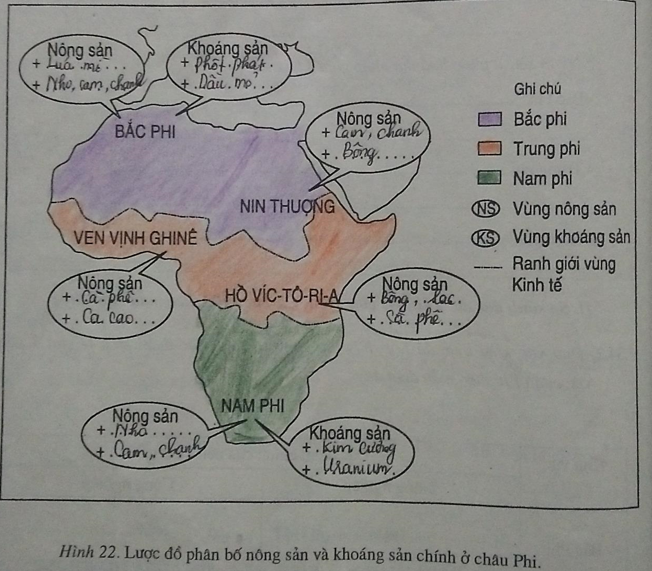 Nông sản
+ Lúa mì...
+ Nho, cam, chanh
Khoáng sản
+ Phốt phát.
+ .Dầu mỏ...
Nông sản
+ Cam, chanh
+ .Bông.....
BẮC PHI
NIN THƯỢNG
VEN VỊNH GHINÊ
HỒ VÍC-TÔ-RI-A
NAM PHI
Nông sản
+ .Cà phê...
+ .Ca cao...
Nông sản
+ Bông, .lạc.
+ . phê...
Nông sản
+ .Nho.....
+ .Cam, chanh
Khoáng sản
+ .Kim cương
+ .Uranium.
Ghi chú
Bắc phi
Trung phi
Nam phi
NS Vùng nông sản
KS Vùng khoáng sản
Ranh giới vùng
Kinh tế
Hình 22. Lược đồ phân bố nông sản và khoáng sản chính ở châu Phi.